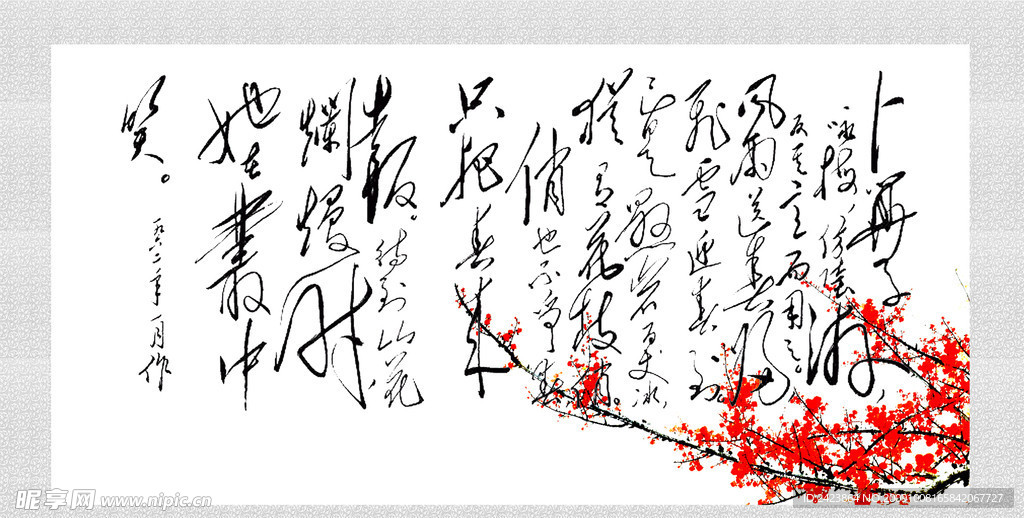 卜算子,
咏梅,仿陸游,
反其意而用之。
風雨送春歸,
飛雪迎春到。
已是懸岩百丈冰,
猶有花枝俏。
俏也不爭春,
只把春來
報。待到山花
爛熳時
她在叢中
笑。
一九六二年一月作
昵享网 www.nipic.cn
ID:2423864 NO:20091008165842067727